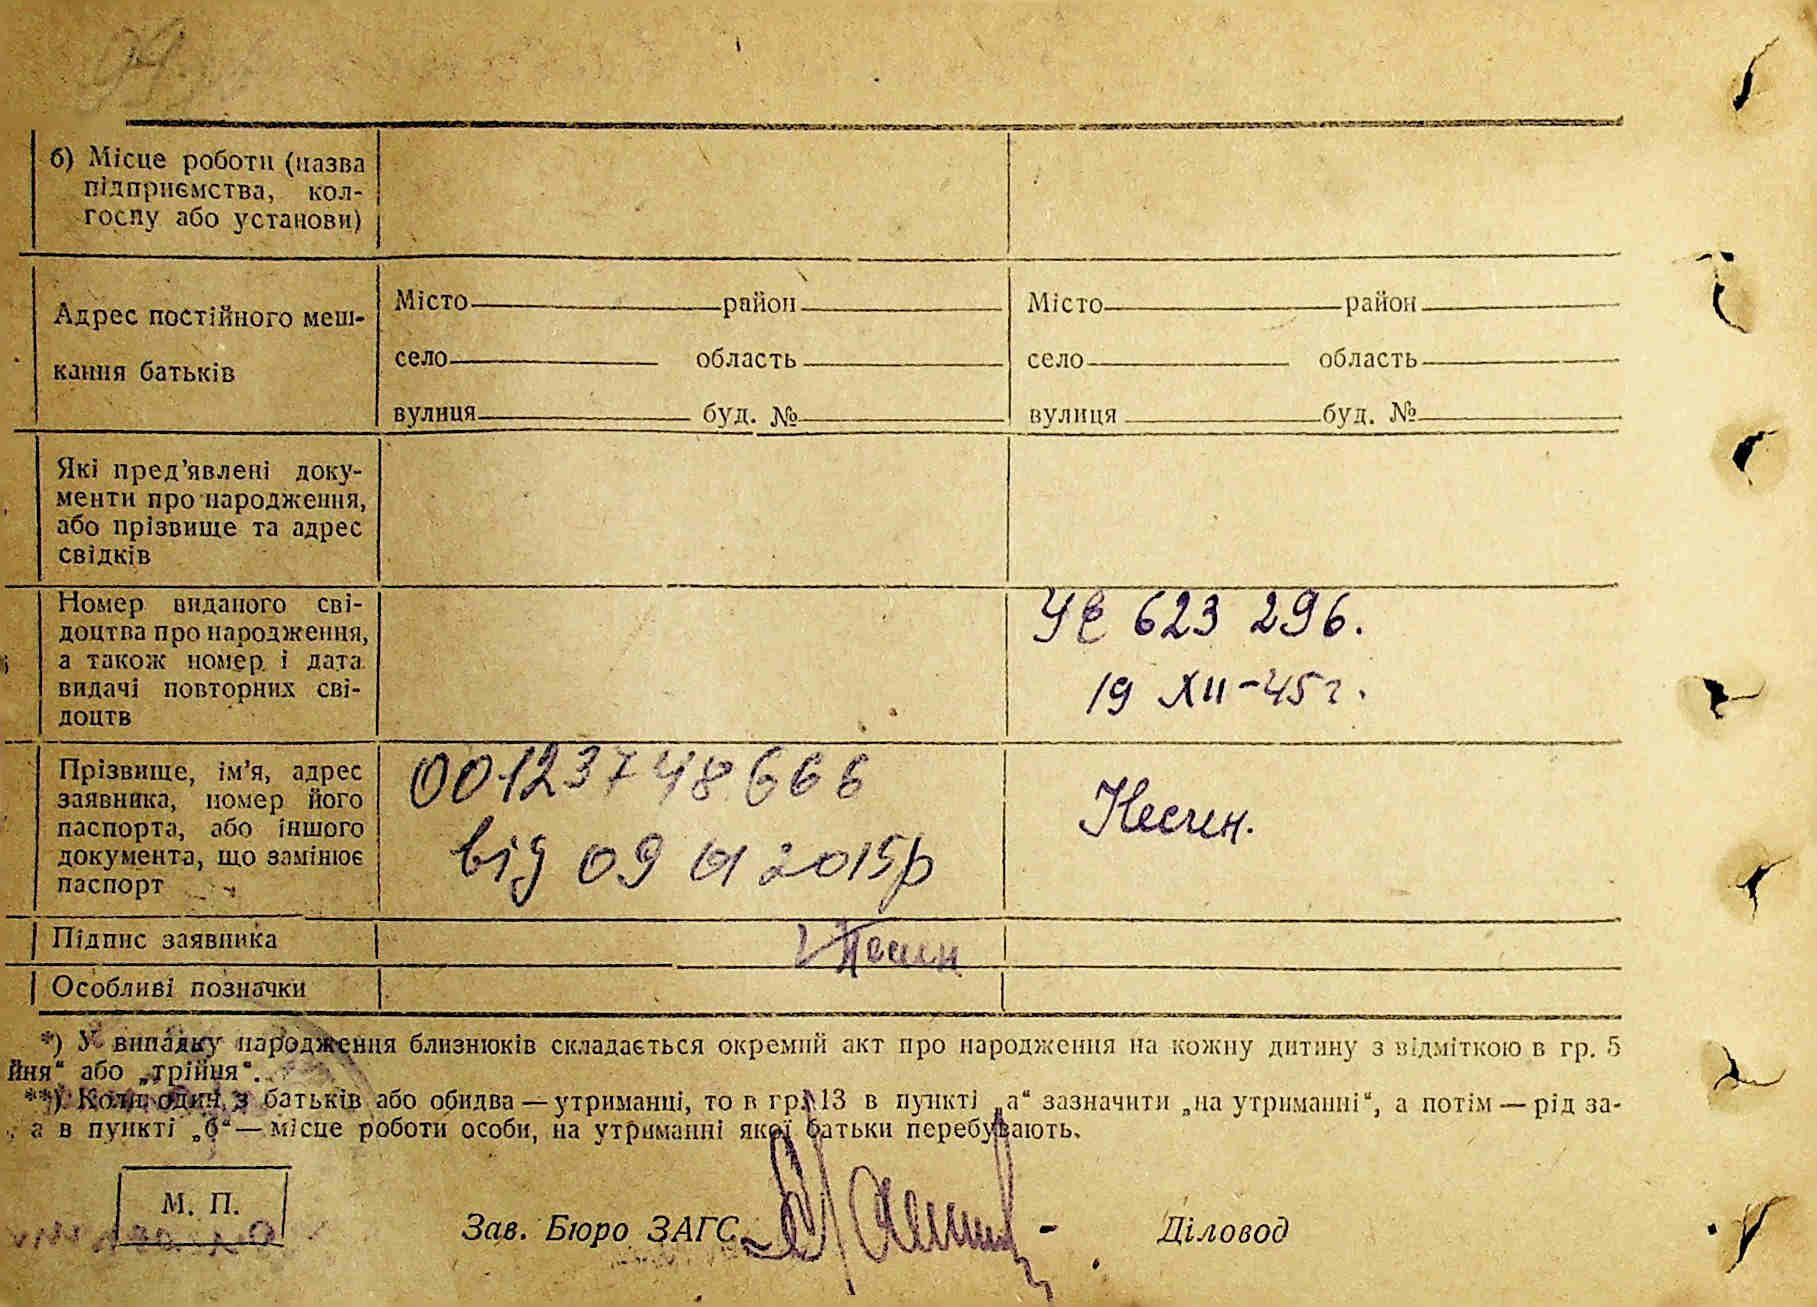 б) Місце роботи (назва
підприємства, кол-
госпу або установи)
Адрес постійного меш-
кання батьків
Місто район
село область
вулиця буд. №
Місто район
село область
вулиця буд. №
Які пред’явлені доку-
менти про народження,
або прізвище та адрес
свідків
Номер виданого сві-
доцтва про народження,
а також номер і дата
видачі повторних сві-
доцтв
УЕ 623 296.
19 XII-45 г.
Прізвище, ім’я, адрес
заявника, номер його
паспорта, або іншого
документа, що замінює
паспорт
00123748666
від 09 01 2015р
Підпис заявника
Особливі позначки
*) У випадку народження близнюків складається окремий акт про народження на кожну дитину з відміткою в гр. 5
йня“ або „трійня“.
**) Коли один з батьків або обидва — утриманці, то в гр. 13 в пункті „а“ зазначити „на утриманні“, а потім — рід за-
а в пункті „б“ — місце роботи особи, на утриманні якої батьки перебувають.
М. П.
Зав. Бюро ЗАГС
Діловод